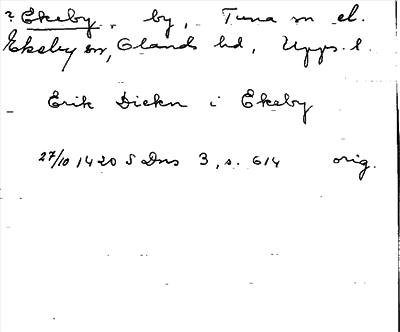 ? Ekeby, by, Tuna sn el.
Ekeby sn, Olands hd, Upps. l.
Erik Diekn i Ekeby
27/10 1420 SDns 3, s. 614 orig.